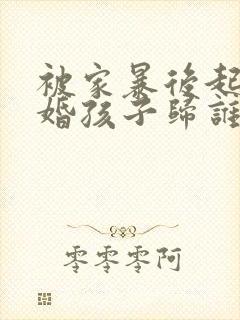 被家暴後起
婚孩子歸誰
零零零阿